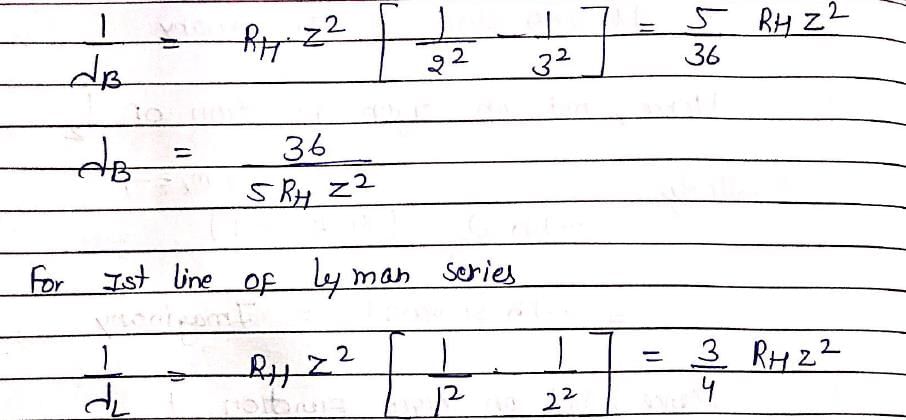 1/dB = RH. Z² [1/2² - 1/3²] = 5/36 RH Z²
dB = 36/5 RH Z²
For Ist line of lyman series
1/dL = RH Z² [1/1² - 1/2²] = 3/4 RH Z²